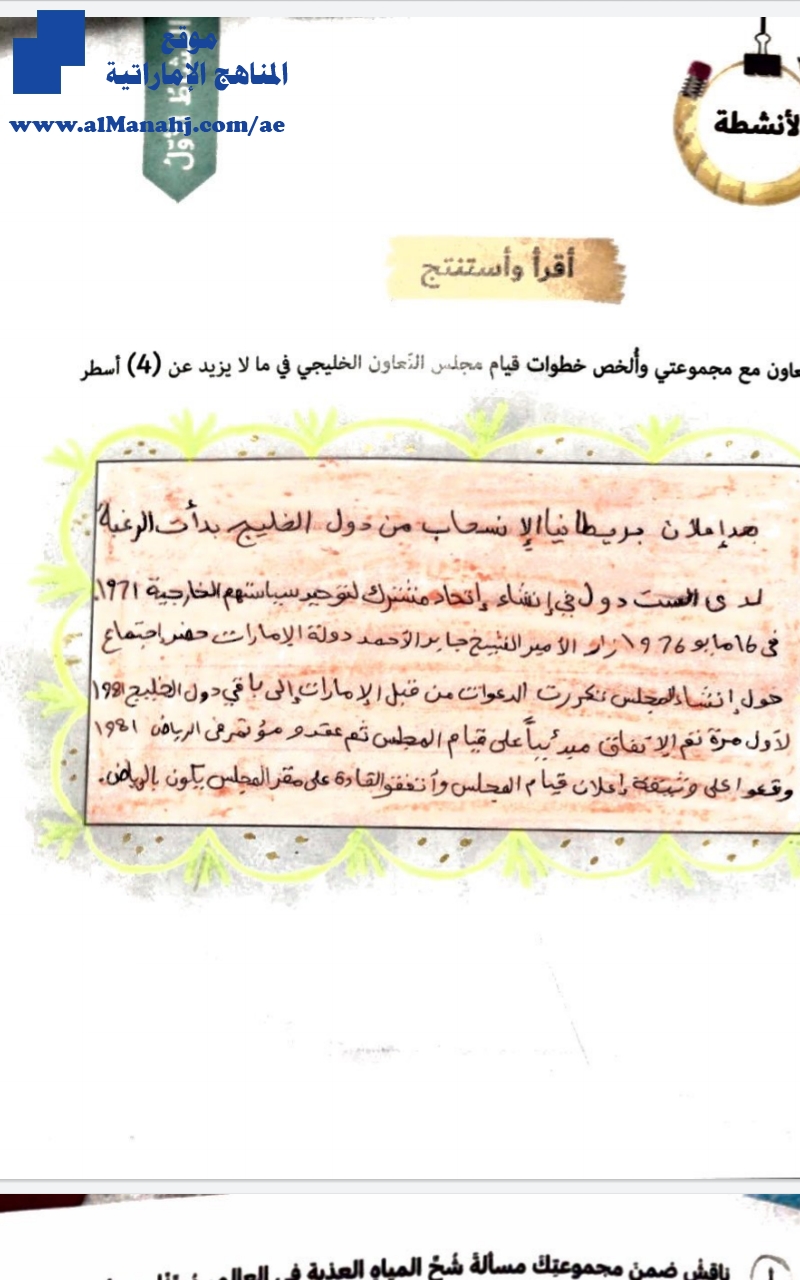 موقع
المناهج الإماراتية
www.alManahj.com/ae
الأنشطة
أقرأ وأستنتج
مع مجموعتي وأُلخص خطوات قيام مجلس التّعاون الخليجي في ما لا يزيد عن (4) أسطر
بريطانيا الإنسحاب من دول الخليج بدأت الرغبة
لدى الست دول في إنشاء إتحاد مشترك لتوحيد سياستهم الخارجية 1971.
في 16 مايو 1976 زار الأمير الشيخ جابر الأحمد دولة الإمارات حضر إجتماع
حول إنشاء المجلس تكررت الدعوات من قبل الإمارات إلى باقي دول الخليج 1981
لأول مرة تم الإتفاق مبدئياً على قيام المجلس ثم عقد مؤتمر في الرياض ١٩٨١
وقعوا على وثيقة إعلان قيام المجلس وأتفقو القادة على مقر المجلس يكون بالرياض.
ناقش ضمن مجموعتك مسألة شُحّ المياه العذبة في العالم